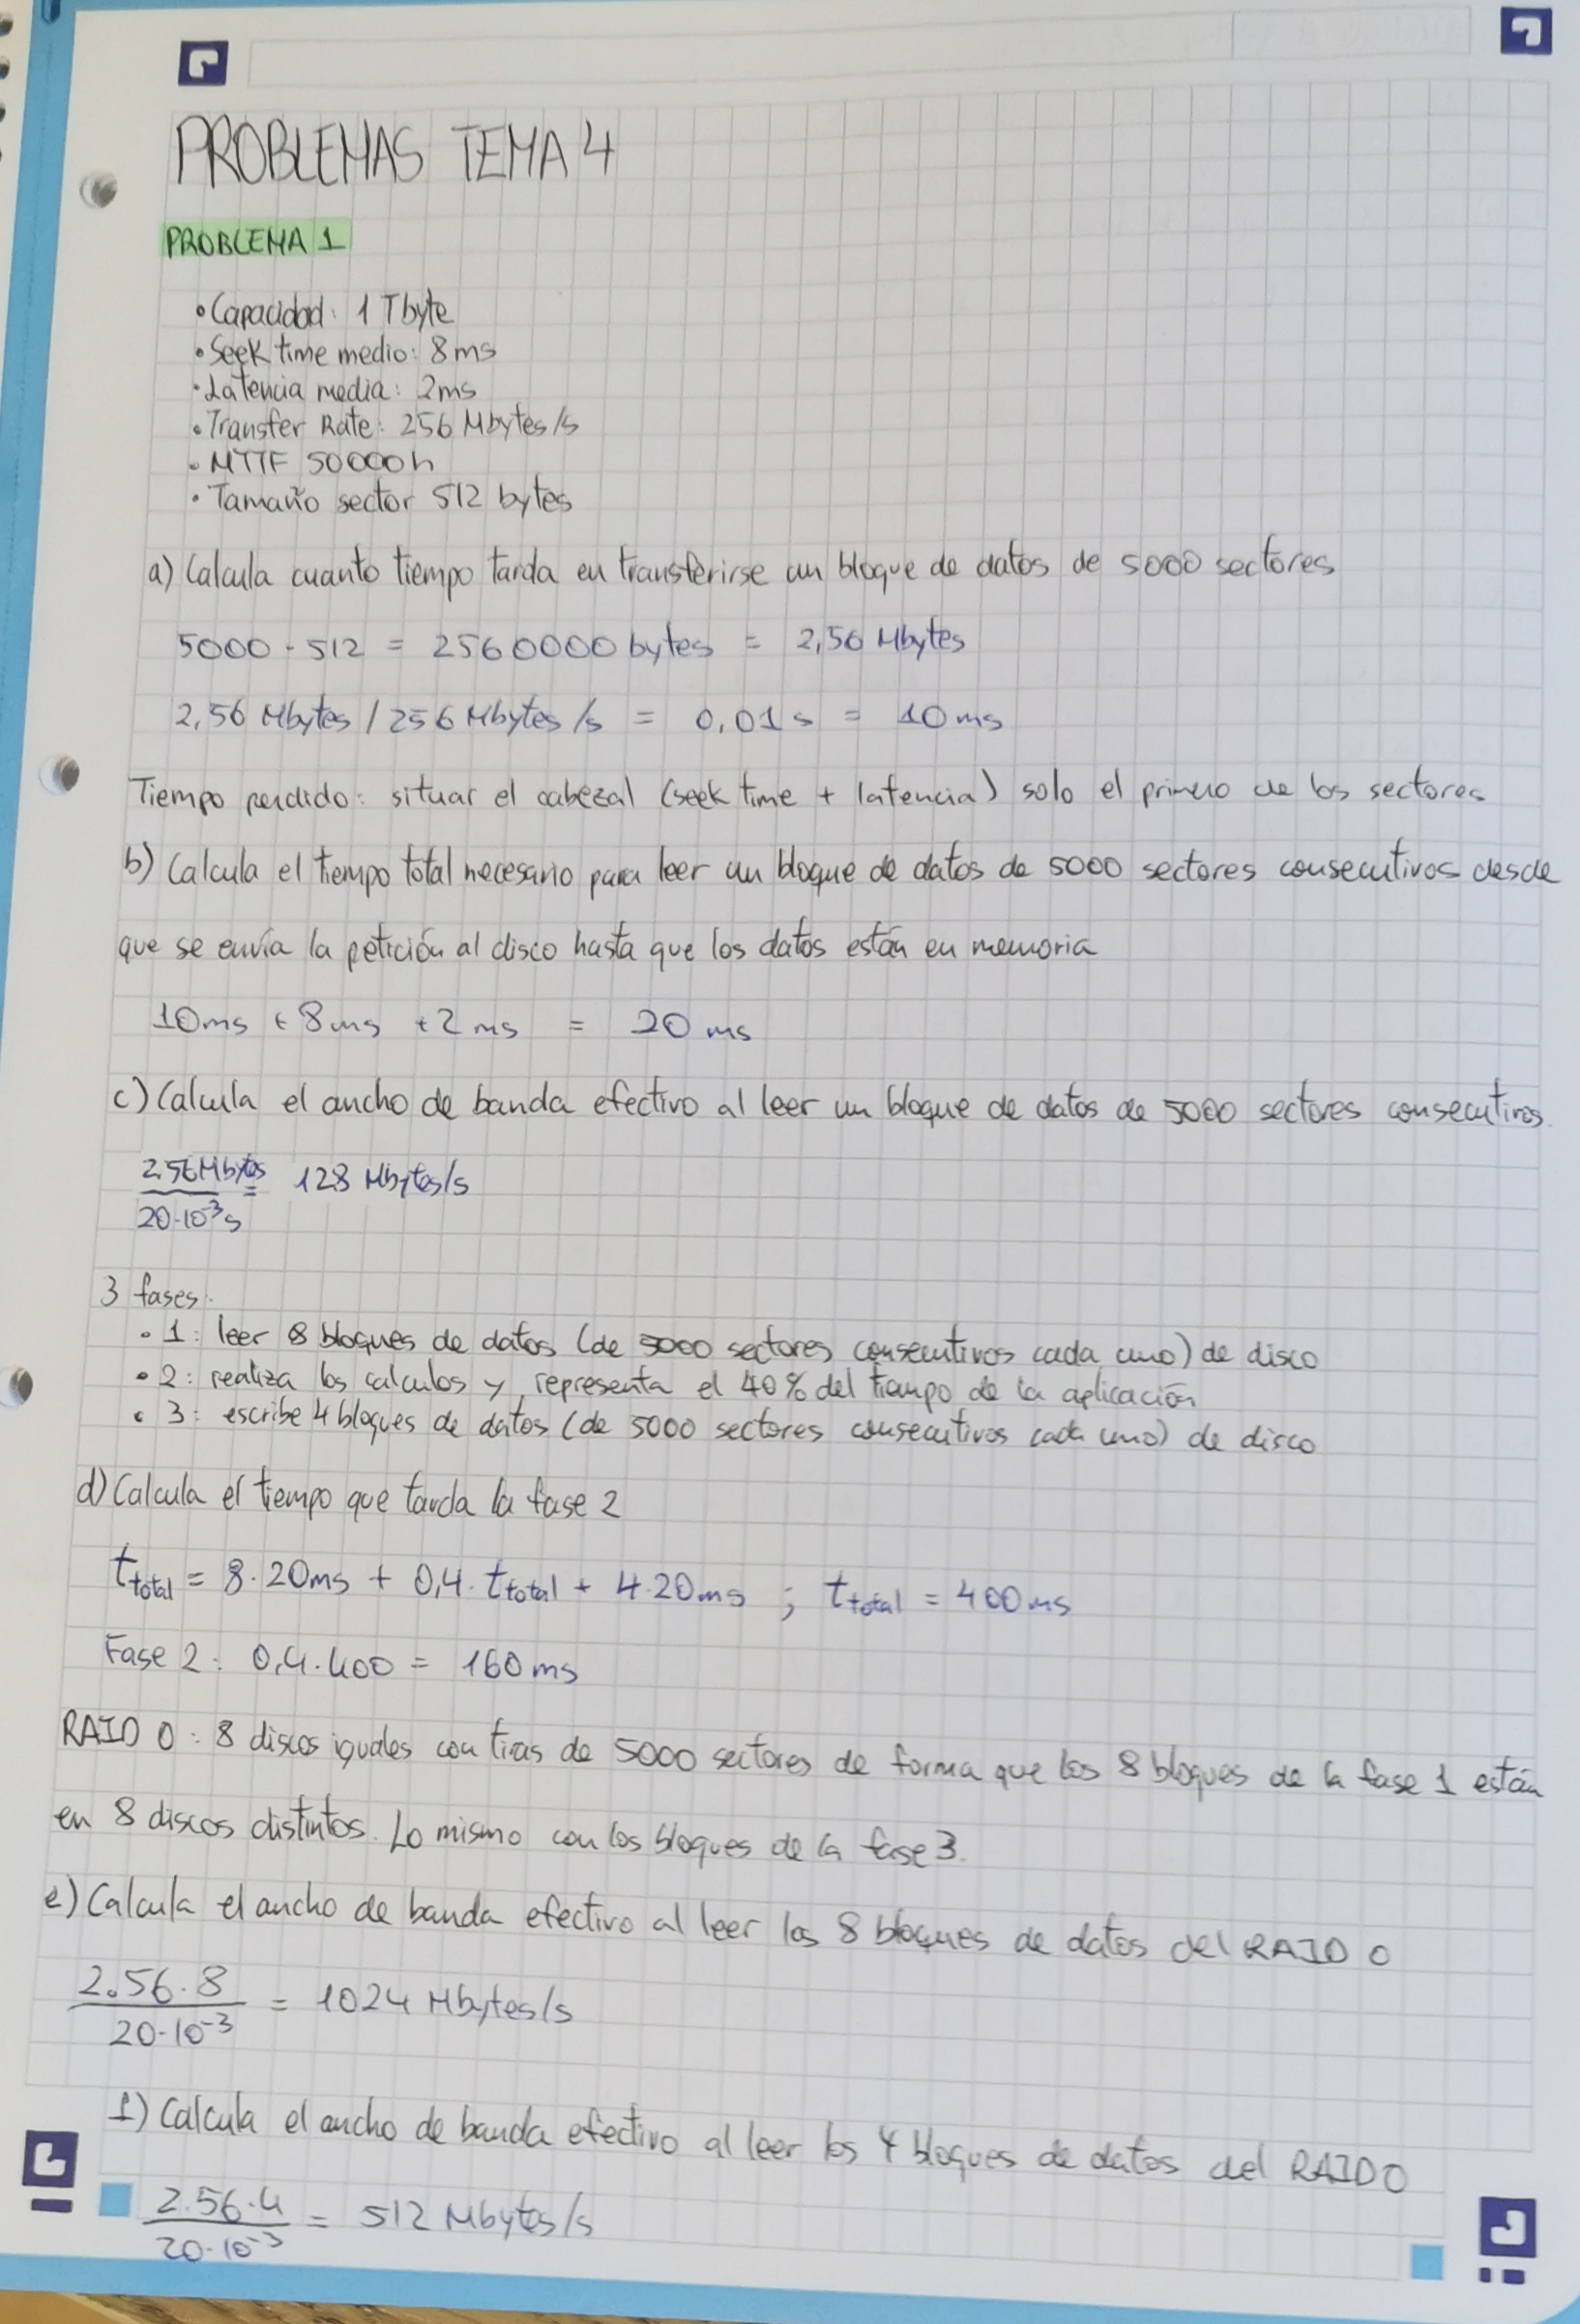 PROBLEMAS TEMA 4
PROBLEMA 1
• Capacidad: 1 Tbyte
• Seek time medio: 8ms
• Latencia media: 2ms
• Transfer Rate: 256 Mbytes/s
• MTTF 50000h
• Tamaño sector 512 bytes
a) Calcula cuanto tiempo tarda en transferirse un bloque de datos de 5000 sectores
5000 · 512 = 2560000 bytes = 2,56 Mbytes
2,56 Mbytes / 256 Mbytes/s = 0,01s = 10ms
Tiempo perdido: situar el cabezal (seek time + latencia) solo el primero de los sectores
b) Calcula el tiempo total necesario para leer un bloque de datos de 5000 sectores consecutivos desde
que se envía la petición al disco hasta que los datos están en memoria
10ms + 8ms + 2ms = 20 ms
c) Calcula el ancho de banda efectivo al leer un bloque de datos de 5000 sectores consecutivos.
2,56 Mbytes / 20·10⁻³ s = 128 Mbytes/s
3 fases:
• 1: leer 8 bloques de datos (de 5000 sectores consecutivos cada uno) de disco
• 2: realiza los calculos y representa el 40% del tiempo de la aplicación
• 3: escribe 4 bloques de datos (de 5000 sectores consecutivos cada uno) de disco
d) Calcula el tiempo que tarda la fase 2
t total = 8·20ms + 0,4· t total + 4·20ms ; t total = 400ms
Fase 2: 0,4·400 = 160ms
RAID 0: 8 discos iguales con tiras de 5000 sectores de forma que los 8 bloques de la fase 1 están
en 8 discos distintos. Lo mismo con los bloques de la fase 3.
e) Calcula el ancho de banda efectivo al leer los 8 bloques de datos del RAID 0
2.56·8 / 20·10⁻³ = 1024 Mbytes/s
f) Calcula el ancho de banda efectivo al leer los 4 bloques de datos del RAID 0
2.56·4 / 20·10⁻³ = 512 Mbytes/s